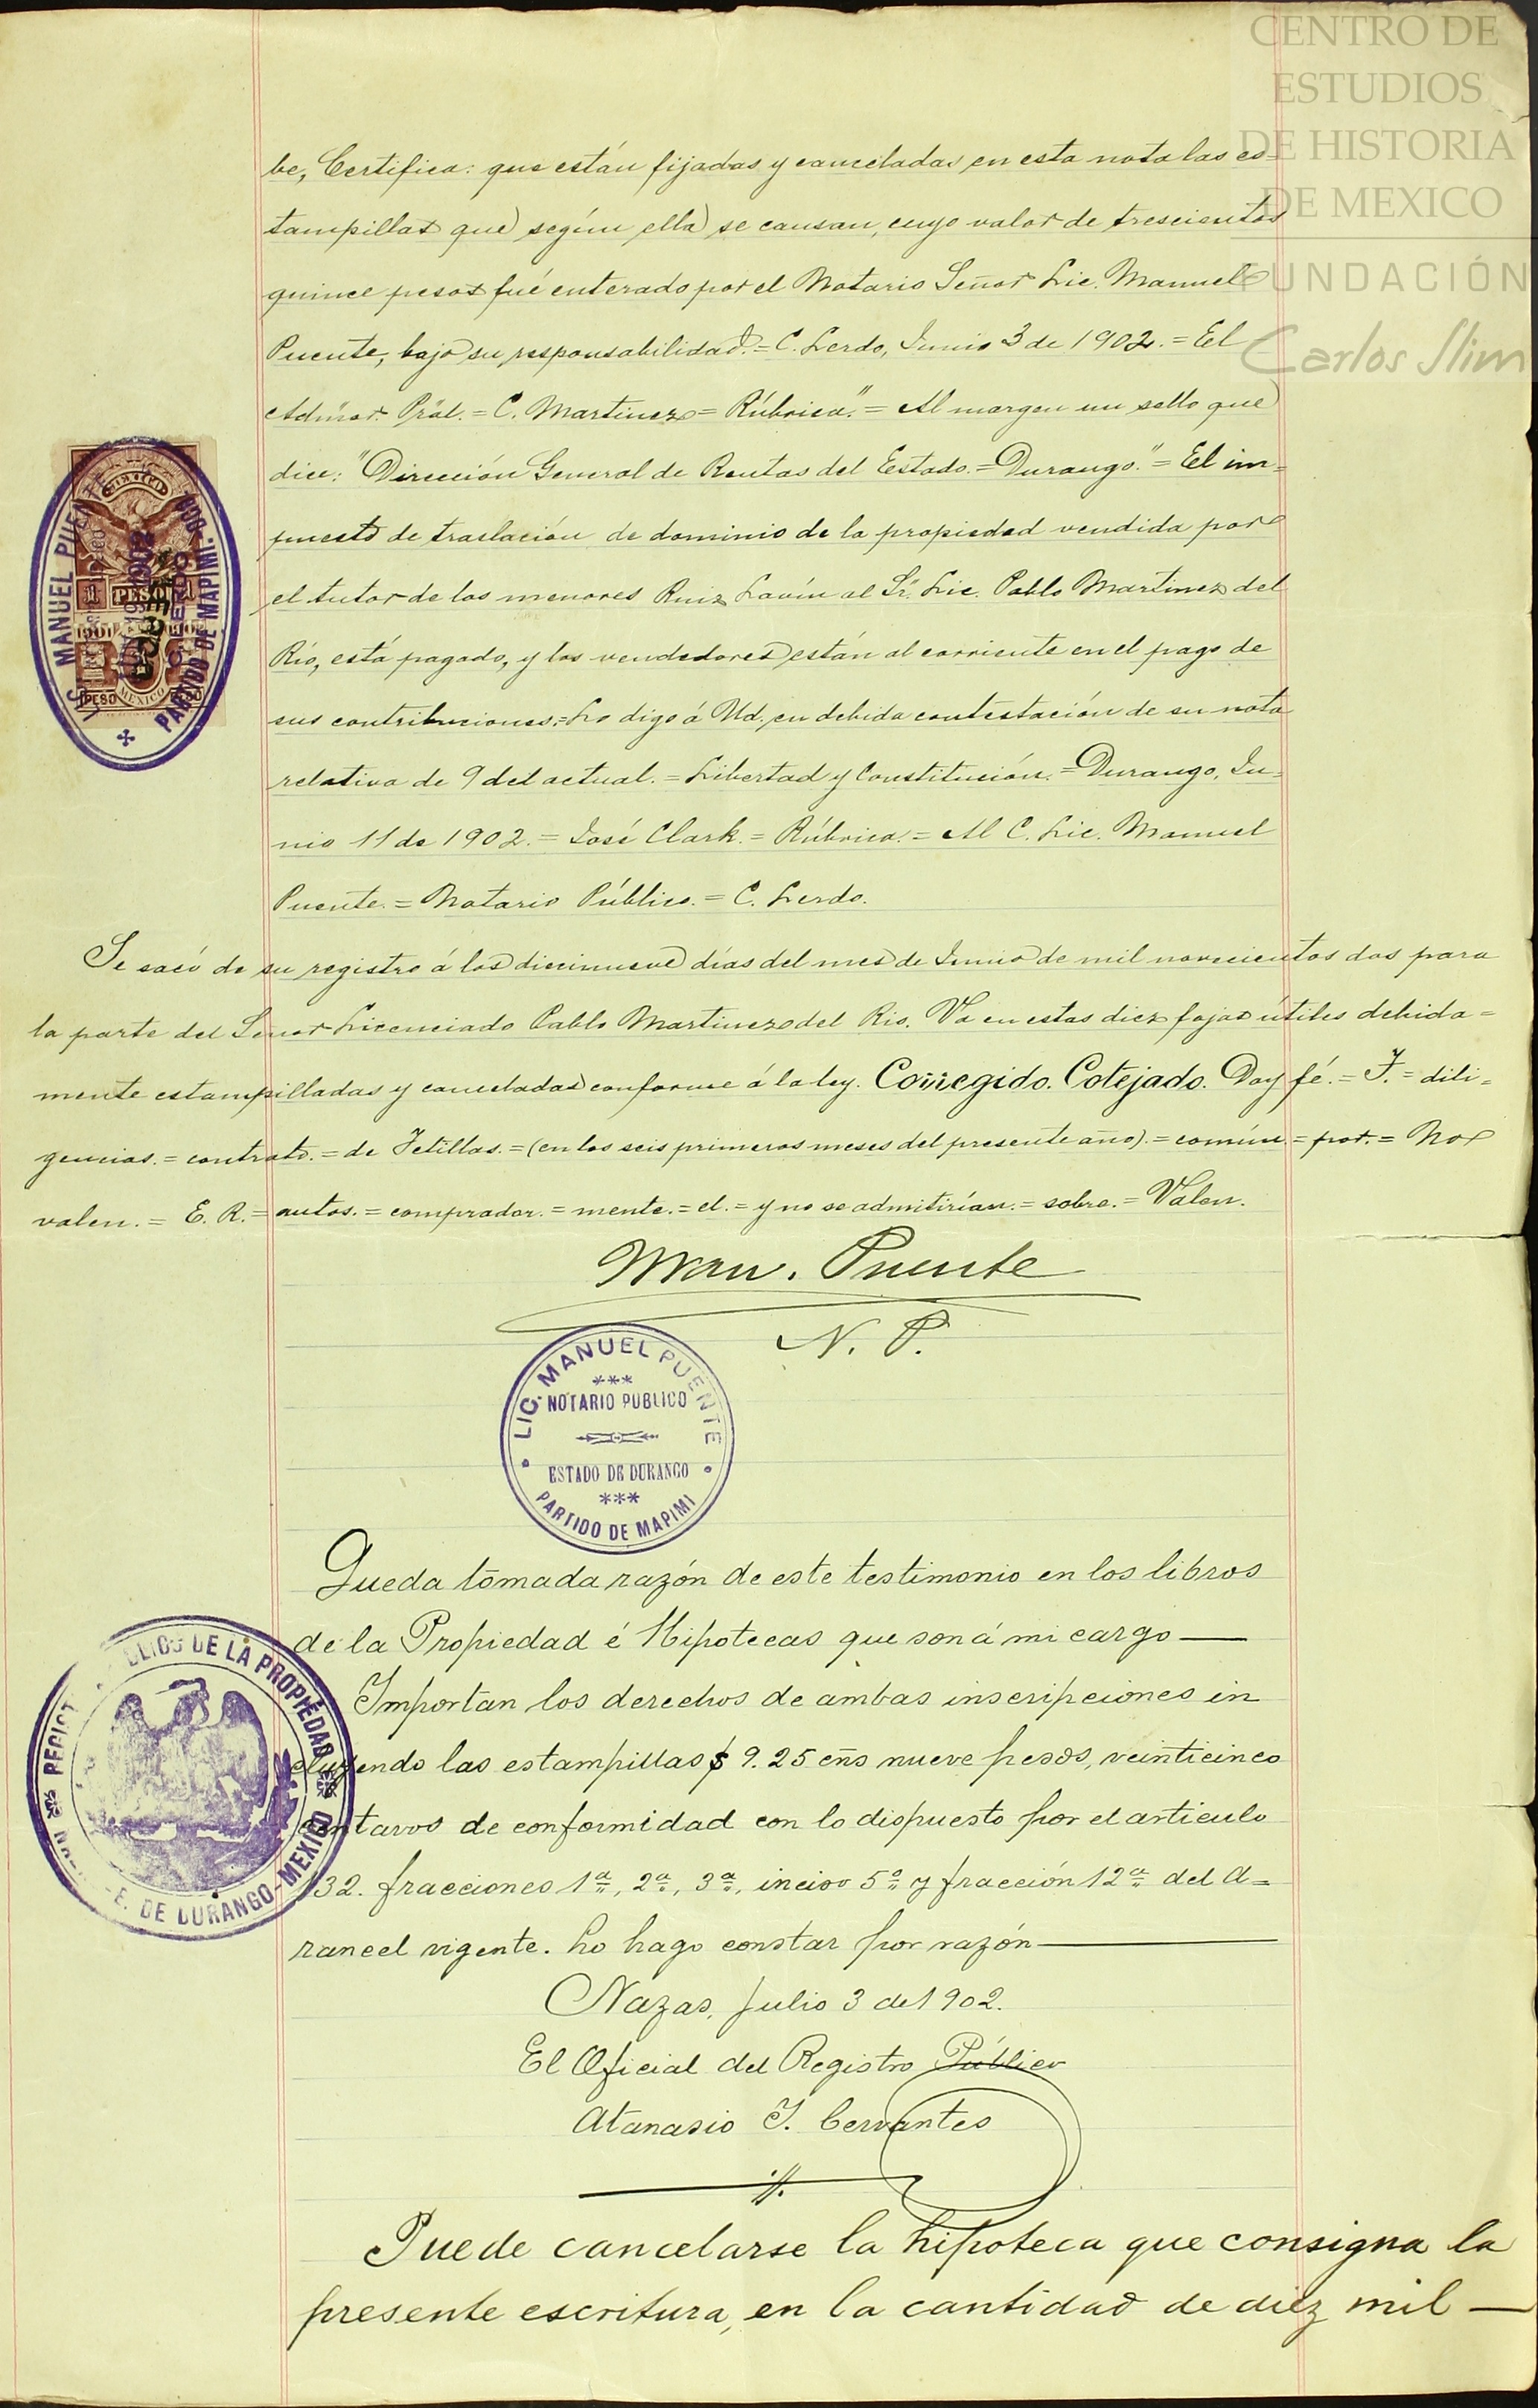 CENTRO DE
ESTUDIOS
DE HISTORIA
DE MEXICO
FUNDACIÓN
Carlos Slim
be, Certifica: que están fijadas y canceladas en esta nota las es-
tampillas que según ella se causan, cuyo valor de trescientos
quince pesos fué enterado por el Notario Señor Lic. Manuel
Puente, bajo su responsabilidad. = C. Lerdo, Junio 3 de 1902. = El
Admor. Pral. = C. Martinez = Rúbrica." = Al margen un sello que
dice: "Dirección General de Rentas del Estado. = Durango." = El im=
puesto de traslación de dominio de la propiedad vendida por
el tutor de los menores Ruiz Lavín al Sr. Lic. Pablo Martinez del
Río, está pagado, y los vendedores están al corriente en el pago de
sus contribuciones. = Lo digo á Ud. en debida contestación de su nota
relativa de 9 del actual. = Libertad y Constitución. = Durango, Ju=
nio 11 de 1902. = José Clark. = Rúbrica. = Al C. Lic. Manuel
Puente. = Notario Público. = C. Lerdo.
Se sacó de su registro á los diecinueve días del mes de Junio de mil novecientos dos para
la parte del Señor Licenciado Pablo Martinez del Rio. Va en estas diez fojas útiles debida=
mente estampilladas y canceladas conforme á la ley. Corregido. Cotejado. Doy fé. = T. = dili=
gencias. = contrato. = de Tetillas. = (en los seis primeros meses del presente año). = común = por. = No
valen. = E. R. = autos. = comprador. = mente. = el. = y no se admitirían. = sobre. = Valen.
Man. Puente
N. P.
LIC. MANUEL PUENTE
***
NOTARIO PUBLICO
ESTADO DE DURANGO
***
PARTIDO DE MAPIMI
MANUEL PUENTE
PARTIDO DE MAPIMI.
MEXICO
1 PESO
Queda tomada razón de este testimonio en los libros
de la Propiedad é Hipotecas que son á mi cargo —
Importan los derechos de ambas inscripciones in
cluyendo las estampillas $ 9.25 cñs nueve pesos, veinticinco
centavos de conformidad con lo dispuesto por el articulo
132. fracciones 1ª, 2ª, 3ª, inciso 5º y fracción 12ª del A=
rancel vigente. Lo hago constar por razón —
Nazas, Julio 3 de 1902.
El Oficial del Registro Público
Atanasio J. Cervantes
DE LA PROPIEDAD
E. DE DURANGO-MEXICO
Puede cancelarse la hipoteca que consigna la
presente escritura, en la cantidad de diez mil —